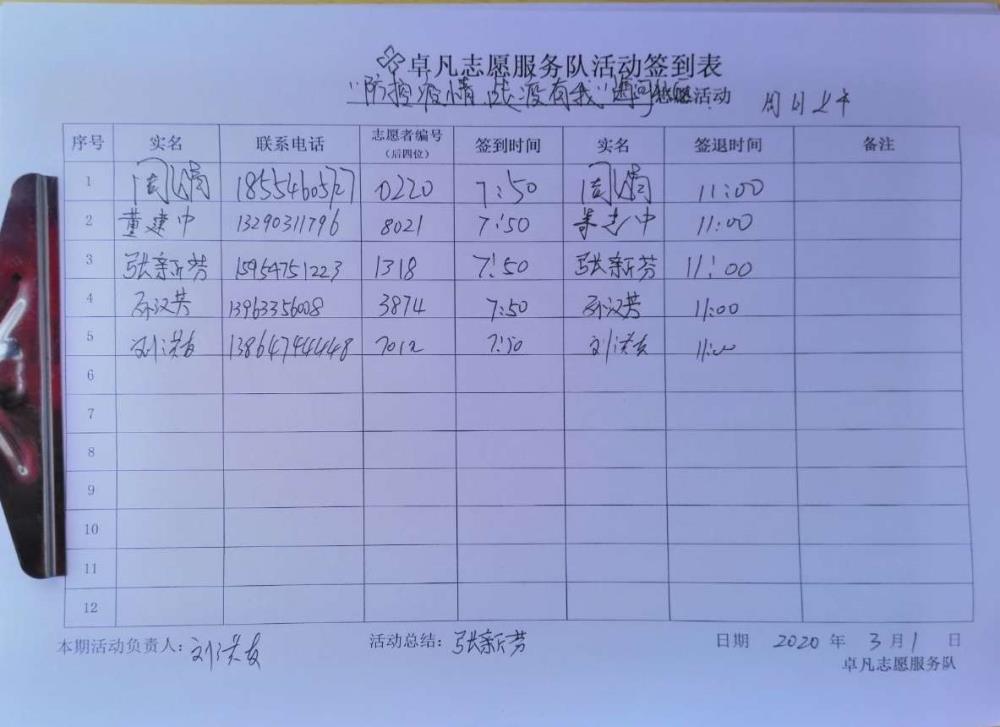 卓凡志愿服务队活动签到表
"防控疫情 战"疫"有我" 活动 周日上午
序号 实名 联系电话 志愿者编号（后四位） 签到时间 实名 签退时间 备注
1 周 0220 7:50 周 11:00
2 董建中 13290311796 8021 7:50 董建中 11:00
3 张新芳 15954751223 1318 7:50 张新芳 11:00
4 孙汉英 13963356008 3874 7:50 孙汉英 11:00
5 刘洪友 13864744448 7012 7:50 刘洪友 11:00
6
7
8
9
10
11
12
本期活动负责人：刘洪友 活动总结：张新芳 日期 2020 年 3 月 1 日
卓凡志愿服务队